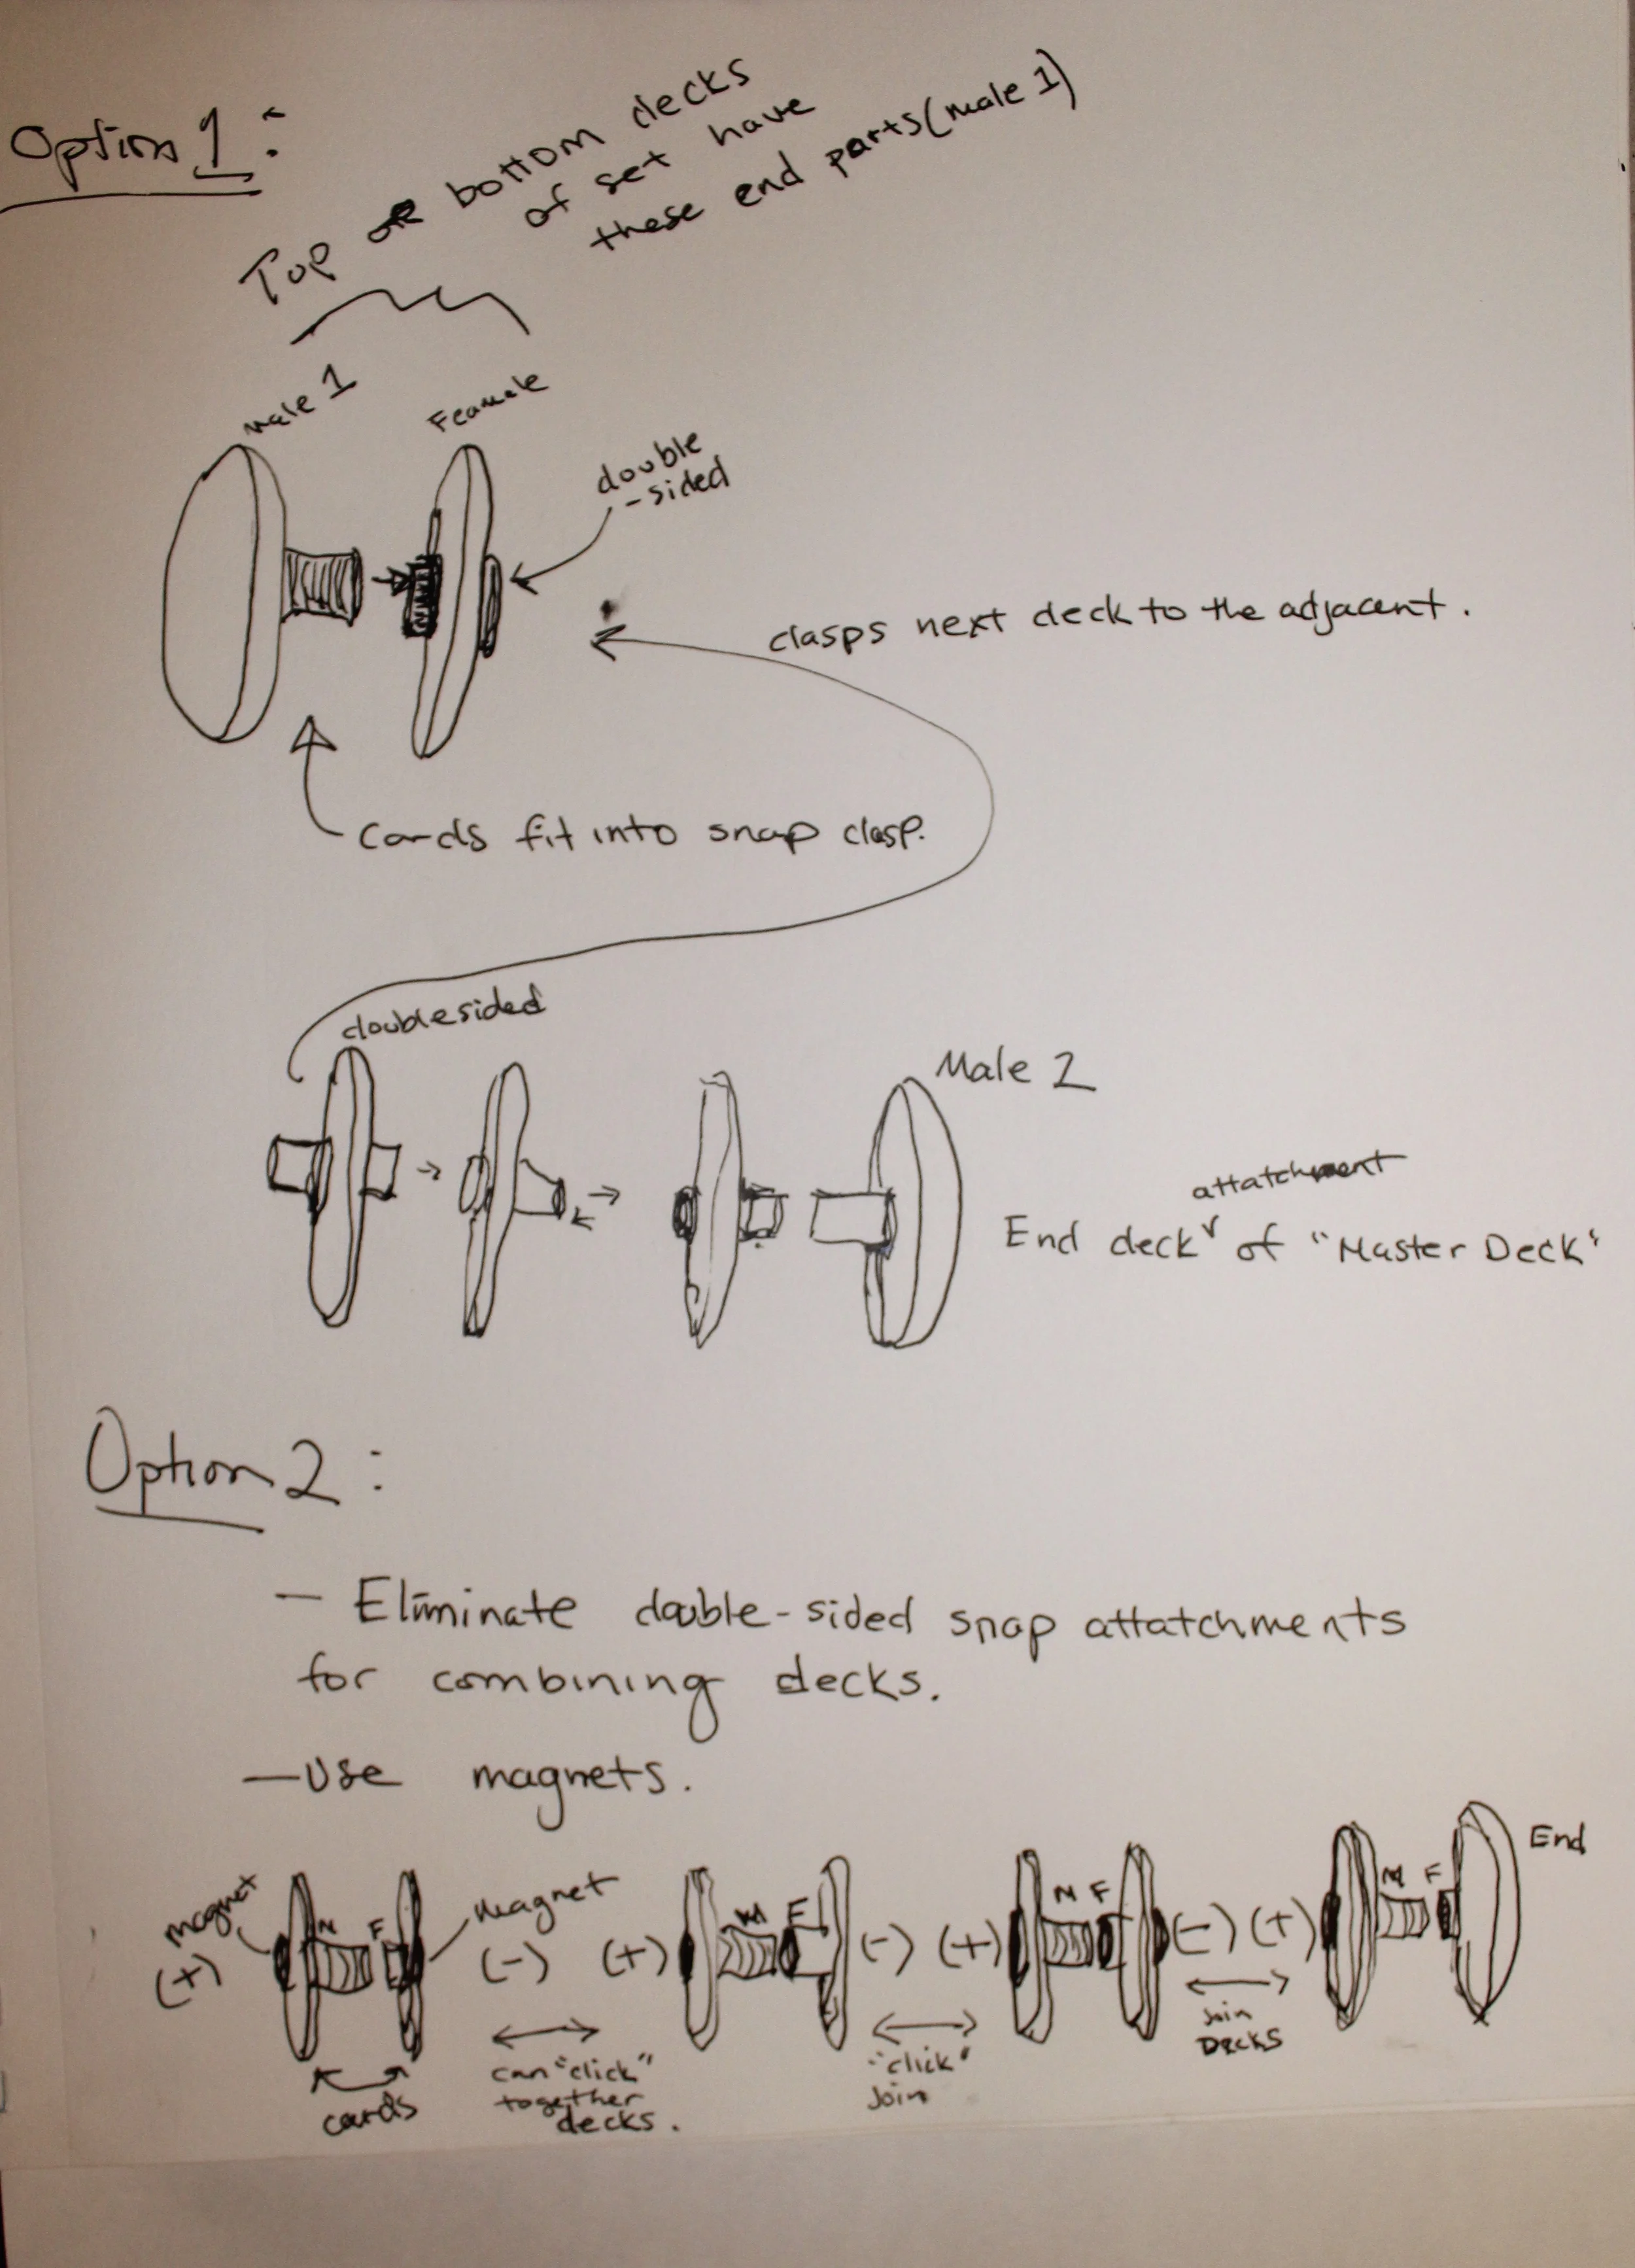 Option 1:
Top or bottom decks
of set have
these end parts (male 1)
male 1
Feamale
double
-sided
clasps next deck to the adjacent.
Cards fit into snap clasp.
doublesided
Male 2
attatchment
End deck of "Master Deck"
Option 2:
- Eliminate double-sided snap attatchments
for combining decks.
- Use magnets.
End
magnet
(+)
M F
magnet
(-) (+)
M F
(-) (+)
M F
(-) (+)
M F
cards
can "click"
together
decks.
"click"
Join
Join
Decks